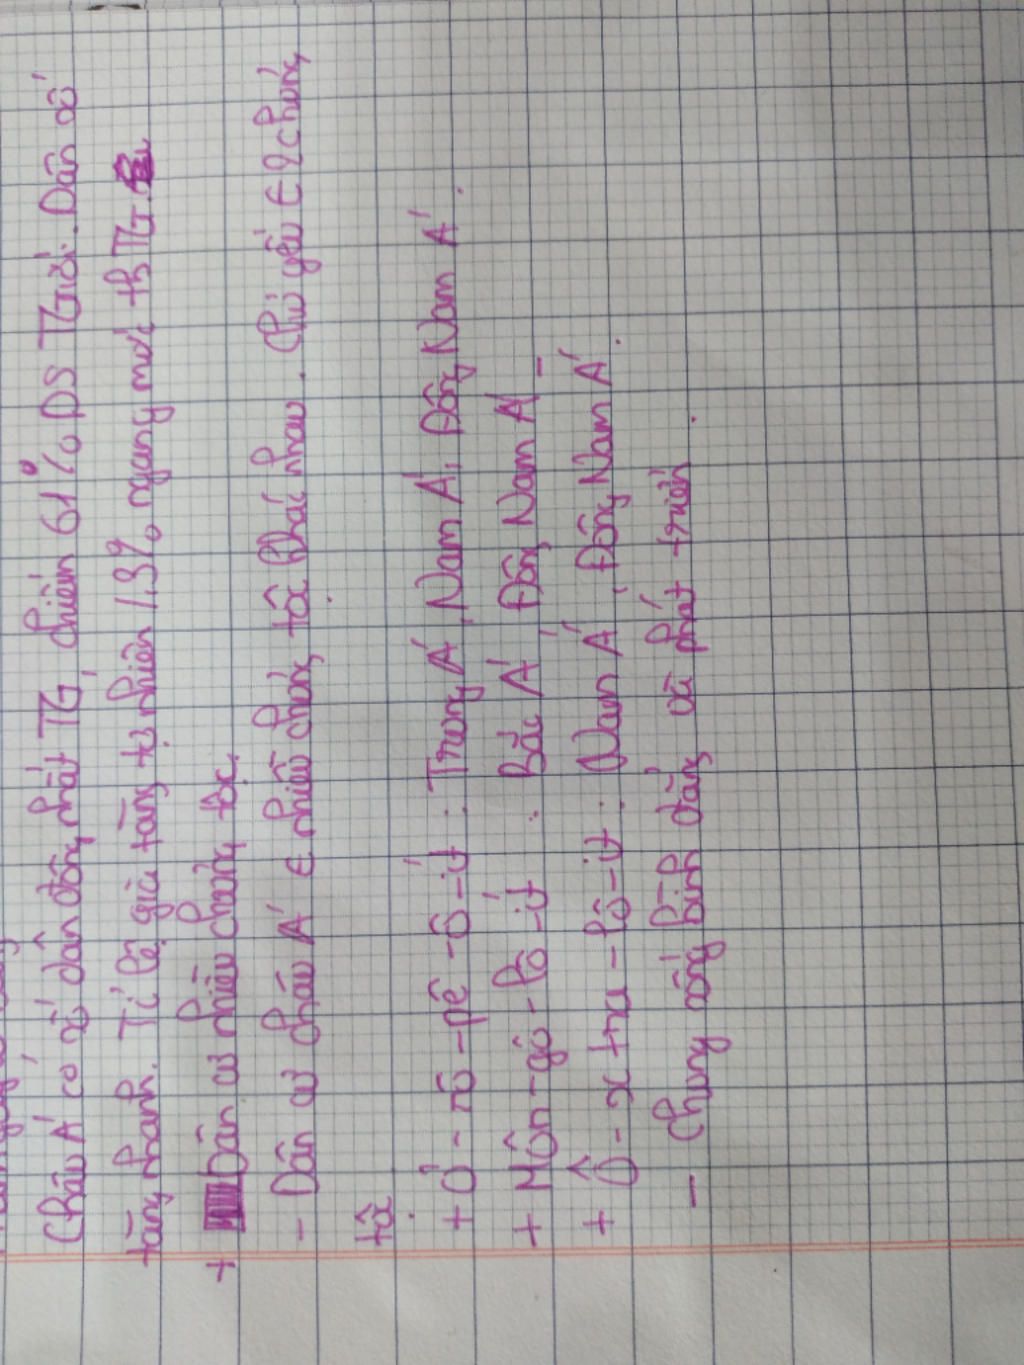 Châu Á có số dân đông nhất TG, chiếm 61% DS TGiới. Dân số
tăng nhanh. Tỉ lệ gia tăng tự nhiên 1.3% ngang mức tb TG.
+ Dân cư nhiều chủng tộc.
- Dân cư châu Á ∈ nhiều chủng tộc khác nhau. Chủ yếu ∈ 2 chủng
tộc
+ Ơ-rô-pê-ô-it: Trung Á, Nam Á, Đông Nam Á.
+ Môn-gô-lô-it: Bắc Á, Đông Nam Á
+ Ô-xtra-lô-it: Nam Á, Đông Nam Á.
- Chung sống bình đẳng và phát triển.